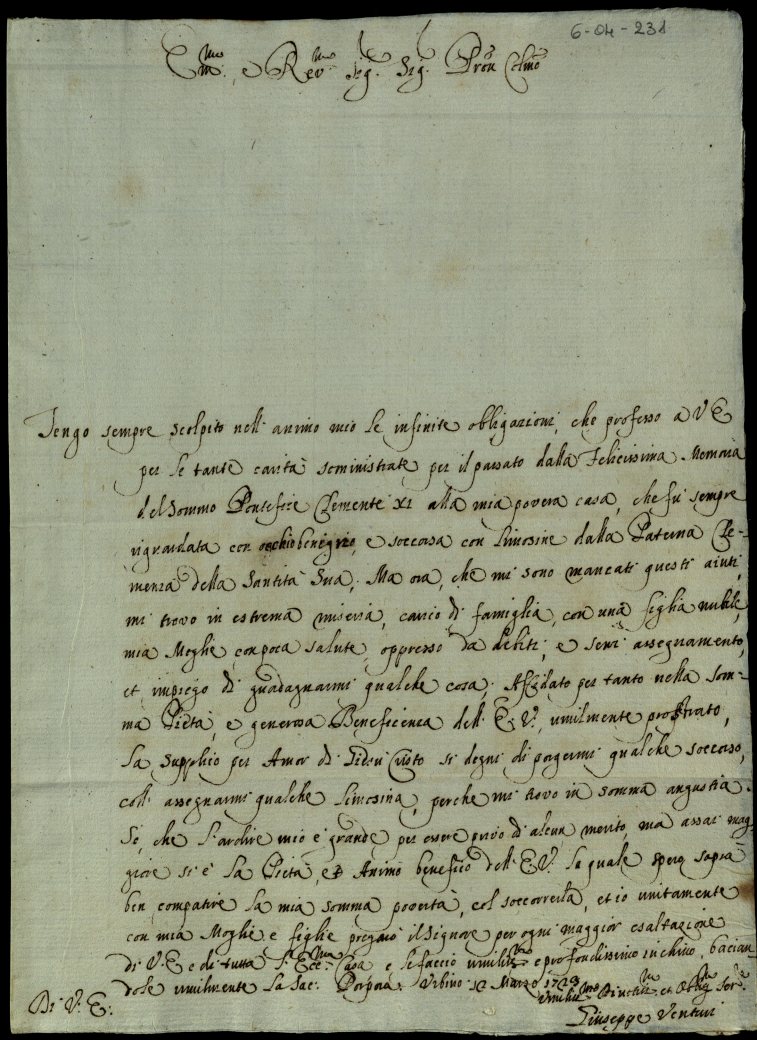 6-04-231
Em.mo e Rev.mo Sig.r Sig.r Pron Colmo
Tengo sempre scolpito nell' animo mio le infinite obligazioni, che professo a V E
per le tante carità soministrate per il passato dalla Felicissima Memoria
del Sommo Pontefice Clemente XI alla mia povera casa, che fu sempre
riguardata con occhio benigno, e soccorsa con limosine dalla Paterna Cle-
menza della Santità Sua; Ma ora, che mi sono mancati questi aiuti,
mi trovo in estrema miseria, carico di famiglia, con una figlia nubile,
mia Moglie con poca salute, oppresso da debiti, e senz' assegnamento,
et impiego di guadagnarmi qualche cosa; Affidato per tanto nella som-
ma Pietà, e generosa Beneficenza dell' E: V: umilmente prostrato,
la supplico per Amor di Giesù Cristo si degni di porgermi qualche soccorso,
coll' assegnarmi qualche limosina, perche mi trovo in somma angustia.
Sò, che l'ardire mio è grande per essere privo di alcun merito, ma assai mag-
giore si è la Pietà, et Animo benefico dell' E V. la quale spero saprà
ben compatire la mia somma povertà, col soccorrerla, et io unitamente
con mia Moglie e figlie pregarò il Signore per ogni maggior esaltazione
di V. E e di tutta l' Ecc.ma Casa e le faccio umiliss.o e profondissimo inchino, bacian-
dole umilmente la Sac: Porpora. Urbino 12 Marzo 1723
Di V. E:
Umiliss.mo Divotiss.mo et Oblig.mo Ser.re
Giuseppe Venturi